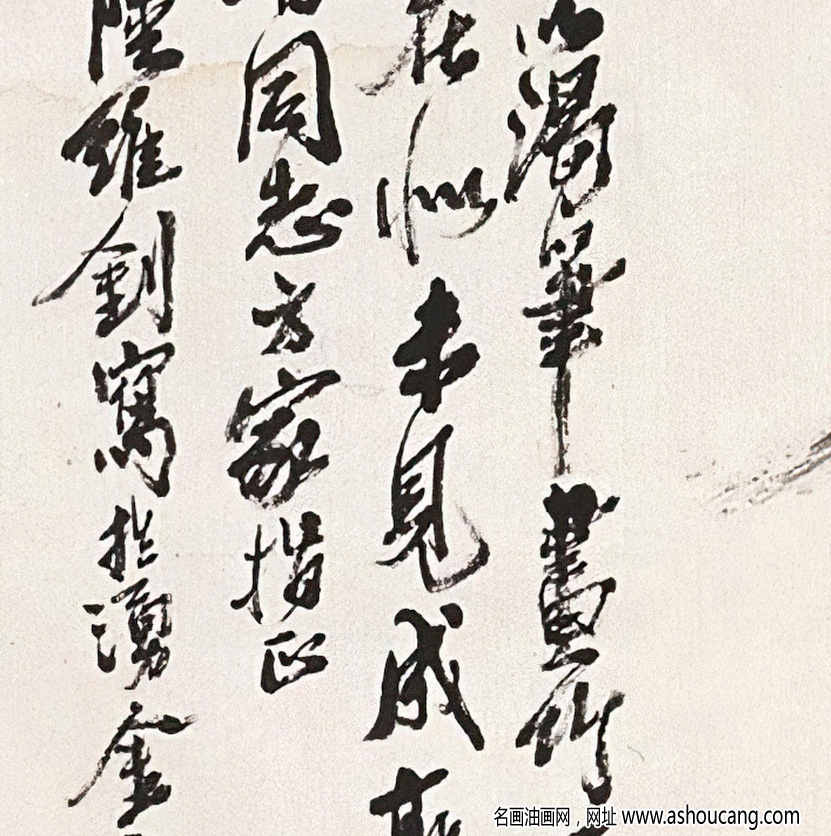 以渴筆畫竹
在似未見成
同志方家指正
陸維釗寫於湧金
名画油画网，网址 www.ashoucang.com